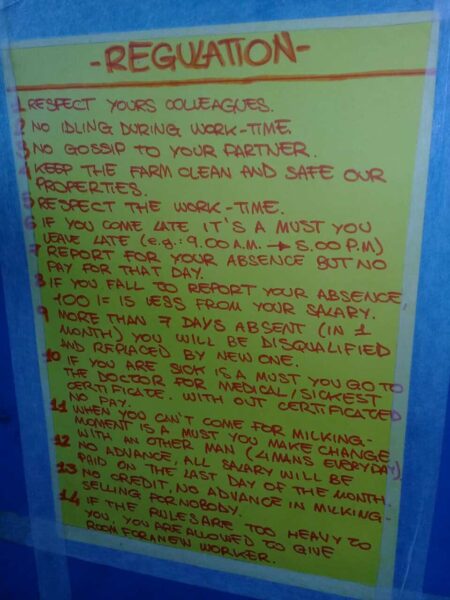 -REGULATION-
1 RESPECT YOURS COLLEAGUES.
2 NO IDLING DURING WORK-TIME.
3 NO GOSSIP TO YOUR PARTNER.
4 KEEP THE FARM CLEAN AND SAFE OUR
PROPERTIES.
5 RESPECT THE WORK-TIME.
6 IF YOU COME LATE IT'S A MUST YOU
LEAVE LATE (e.g.: 9.00 A.M. → 5.00 P.M)
7 REPORT FOR YOUR ABSENCE BUT NO
PAY FOR THAT DAY.
8 IF YOU FALL TO REPORT YOUR ABSENCE,
100/= IS LESS FROM YOUR SALARY.
9 MORE THAN 7 DAYS ABSENT (IN 1
MONTH) YOU WILL BE DISQUALIFIED
AND REPLACED BY NEW ONE.
10 IF YOU ARE SICK IS A MUST YOU GO TO
THE DOCTOR FOR MEDICAL/SICKEST
CERTIFICATE. WITH OUT CERTIFICATED
NO PAY.
11 WHEN YOU CAN'T COME FOR MILKING-
MOMENT IS A MUST YOU MAKE CHANGE
WITH AN OTHER MAN (4MANS EVERYDAY)
12 NO ADVANCE, ALL SALARY WILL BE
PAID ON THE LAST DAY OF THE MONTH.
13 NO CREDIT, NO ADVANCE IN MILKING-
SELLING FOR NOBODY.
14 IF THE RULES ARE TOO HEAVY TO
YOU, YOU ARE ALLOWED TO GIVE
ROOM FOR A NEW WORKER.